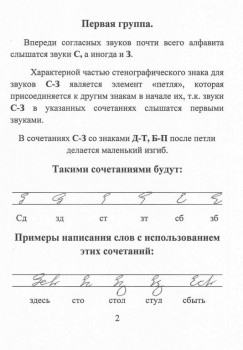 Первая группа.
Впереди согласных звуков почти всего алфавита
слышатся звуки С, а иногда и З.
Характерной частью стенографического знака для
звуков С-З является элемент «петля», которая
присоединяется к другим знакам в начале их, т.к. звуки
С-З в указанных сочетаниях слышатся первыми
звуками.
В сочетаниях С-З со знаками Д-Т, Б-П после петли
делается маленький изгиб.
Такими сочетаниями будут:
Сд зд ст зт сб зб
Примеры написания слов с использованием
этих сочетаний:
здесь сто стол стул сбыть
2